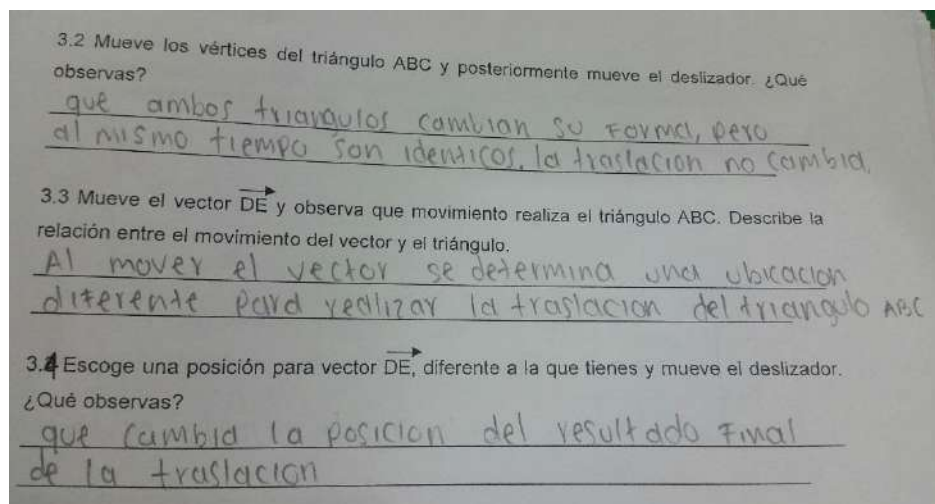 3.2 Mueve los vértices del triángulo ABC y posteriormente mueve el deslizador. ¿Qué
observas?
que ambos triangulos cambian su Forma, pero
al mismo tiempo son identicos. la traslacion no cambia.
3.3 Mueve el vector DE y observa que movimiento realiza el triángulo ABC. Describe la
relación entre el movimiento del vector y el triángulo.
Al mover el vector se determina una ubicacion
diferente para realizar la traslacion del triangulo ABC
3.4 Escoge una posición para vector DE, diferente a la que tienes y mueve el deslizador.
¿Qué observas?
que cambia la posicion del resultado Final
de la traslacion